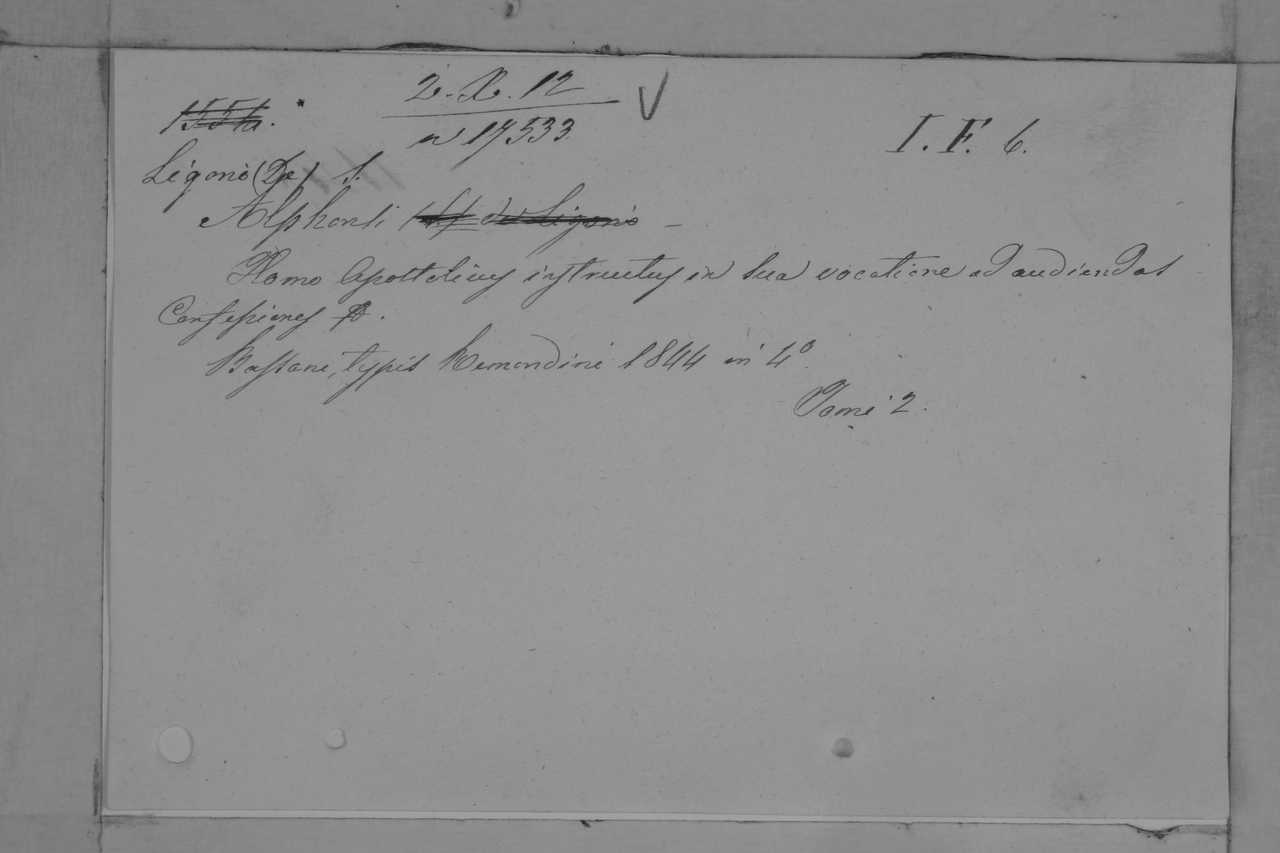 2. X. 12 V
n 17533
I. F. 6.
Ligorio (De) S.
Alphonsi de Ligorio –
Homo Apostolicus instructus in sua vocatione ad audiendas
Confessiones &.
Bassani, typis Remondini 1844 in 4°.
Tomi 2.